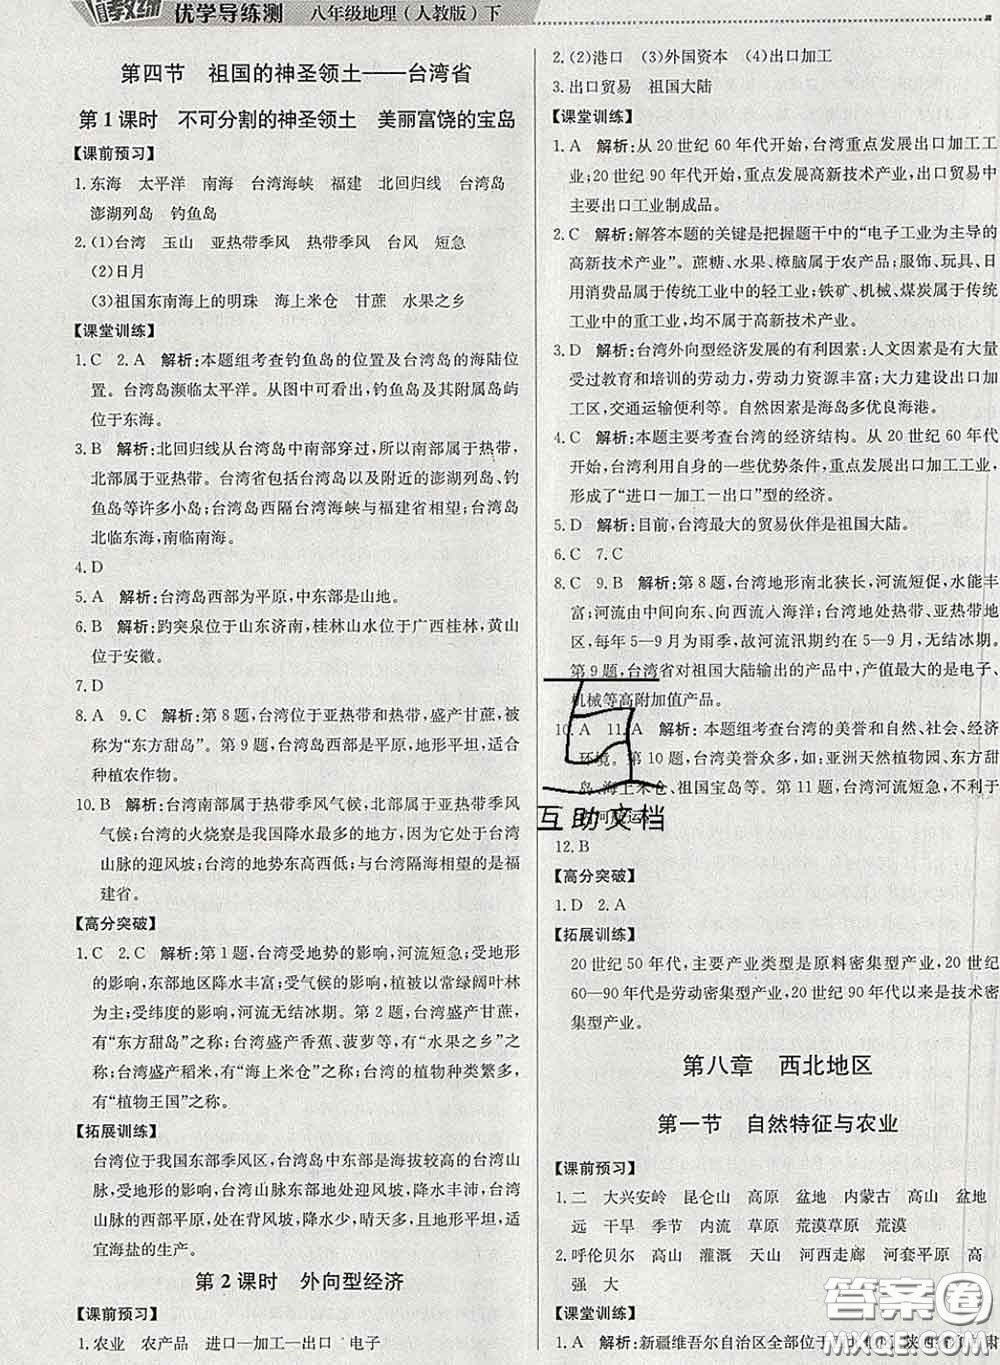 优学导练测 八年级地理(人教版)下
第四节 祖国的神圣领土——台湾省
第1课时 不可分割的神圣领土 美丽富饶的宝岛
【课前预习】
1.东海 太平洋 南海 台湾海峡 福建 北回归线 台湾岛
澎湖列岛 钓鱼岛
2.(1)台湾 玉山 亚热带季风 热带季风 台风 短急
(2)日月
(3)祖国东南海上的明珠 海上米仓 甘蔗 水果之乡
【课堂训练】
1.C 2.A 解析:本题组考查钓鱼岛的位置及台湾岛的海陆位
置。台湾岛濒临太平洋。从图中可看出,钓鱼岛及其附属岛屿
位于东海。
3.B 解析:北回归线从台湾岛中南部穿过,所以南部属于热带,
北部属于亚热带。台湾省包括台湾岛以及附近的澎湖列岛、钓
鱼岛等许多小岛;台湾岛西隔台湾海峡与福建省相望;台湾岛
北临东海,南临南海。
4.D
5.A 解析:台湾岛西部为平原,中东部是山地。
6.B 解析:趵突泉位于山东济南,桂林山水位于广西桂林,黄山
位于安徽。
7.D
8.A 9.C 解析:第8题,台湾位于亚热带和热带,盛产甘蔗,被
称为“东方甜岛”。第9题,台湾岛西部是平原,地形平坦,适合
种植农作物。
10.B 解析:台湾南部属于热带季风气候;北部属于亚热带季风
气候;台湾的火烧寮是我国降水最多的地方,因为它处于台湾
山脉的迎风坡;台湾的地势东高西低;与台湾隔海相望的是福
建省。
【高分突破】
1.C 2.C 解析:第1题,台湾受地势的影响,河流短急;受地形
的影响,东部地区降水丰富;受气候的影响,植被以常绿阔叶林
为主;受纬度的影响,河流无结冰期。第2题,台湾盛产甘蔗,
有“东方甜岛”之称。台湾盛产香蕉、菠萝等,有“水果之乡”之
称;台湾盛产稻米,有“海上米仓”之称;台湾的植物种类繁多,
有“植物王国”之称。
【拓展训练】
台湾位于我国东部季风区,台湾岛中东部是海拔较高的台湾山
脉,受地形的影响,台湾山脉的迎风坡,降水丰沛,晴天少,台湾
山脉的中西部平原,处在背风坡,降水少,晴天多,且地形平坦,适
宜海盐的生产。
第2课时 外向型经济
【课前预习】
1.农业 农产品 进口—加工—出口 电子
2.(2)港口 (3)外国资本 (4)出口加工
3.出口贸易 祖国大陆
【课堂训练】
1.A 解析:从20世纪60年代开始,台湾重点发展出口加工工
业;20世纪90年代开始,重点发展高新技术产业,出口贸易中
主要出口工业制成品。
2.C 解析:解答本题的关键是把握题干中的“电子工业为主导的
高新技术产业”。蔗糖、水果、樟脑属于农产品;服饰、玩具、日
用消费品属于传统工业中的轻工业;铁矿、机械、煤炭属于传统
工业中的重工业,均不属于高新技术产业。
3.D 解析:台湾外向型经济发展的有利因素:人文因素是有大量
受过教育和培训的劳动力,劳动力资源丰富;大力建设出口加
工区,交通运输便利等。自然因素是海岛多优良海港。
4.C 解析:本题主要考查台湾的经济结构。从20世纪60年代
开始,台湾利用自身的一些优势条件,重点发展出口加工工业,
形成了“进口—加工—出口”型的经济。
5.D 解析:目前,台湾最大的贸易伙伴是祖国大陆。
6.C 7.C
8.C 9.B 解析:第8题,台湾地形南北狭长,河流短促,水能丰
富;河流由中间向东、向西流入海洋;台湾地处热带、亚热带地
区,每年5—9月为雨季,故河流汛期约在5—9月,无结冰期。
第9题,台湾省对祖国大陆输出的产品中,产值最大的是电子、
机械等高附加值产品。
10.A 11.A 解析:本题组考查台湾的美誉和自然、社会、经济
环境。第10题,台湾美誉众多,如:亚洲天然植物园、东方甜
岛、海上米仓、祖国宝岛等。第11题,台湾河流短急,不利于
内河航运。
12.B
【高分突破】
1.D 2.A
【拓展训练】
20世纪50年代,主要产业类型是原料密集型产业,20世纪
60—90年代是劳动密集型产业,20世纪90年代以来是技术密
集型产业。
第八章 西北地区
第一节 自然特征与农业
【课前预习】
1.二 大兴安岭 昆仑山 高原 盆地 内蒙古 高山 盆地
远 干旱 季节 内流 草原 荒漠草原 荒漠
2.呼伦贝尔 高山 灌溉 天山 河西走廊 河套平原 高
强 大
【课堂训练】
1.A 解析:新疆维吾尔自治区全部位于
互助文档
答案圈
MXQE.COM